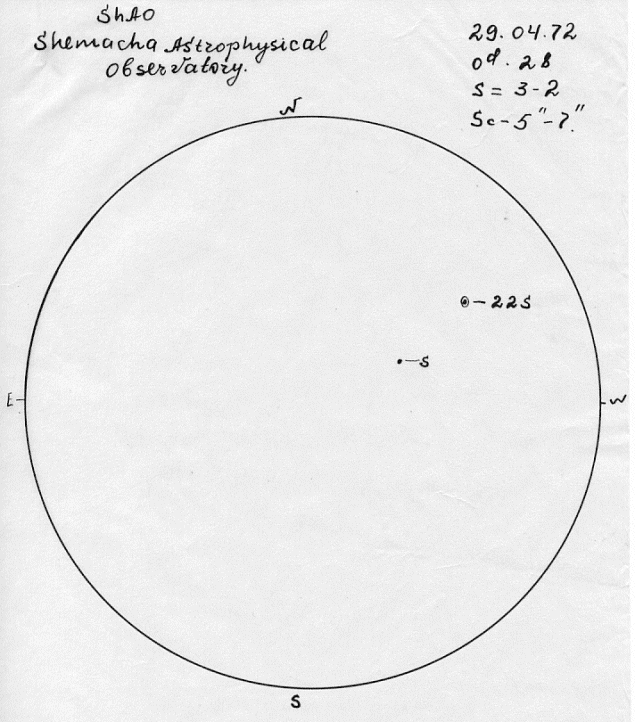 ShAO
Shemacha Astrophysical
Observatory.
29.04.72
od. 28
S = 3-2
Sc - 5"-7"
N
-22S
-S
E
W
S